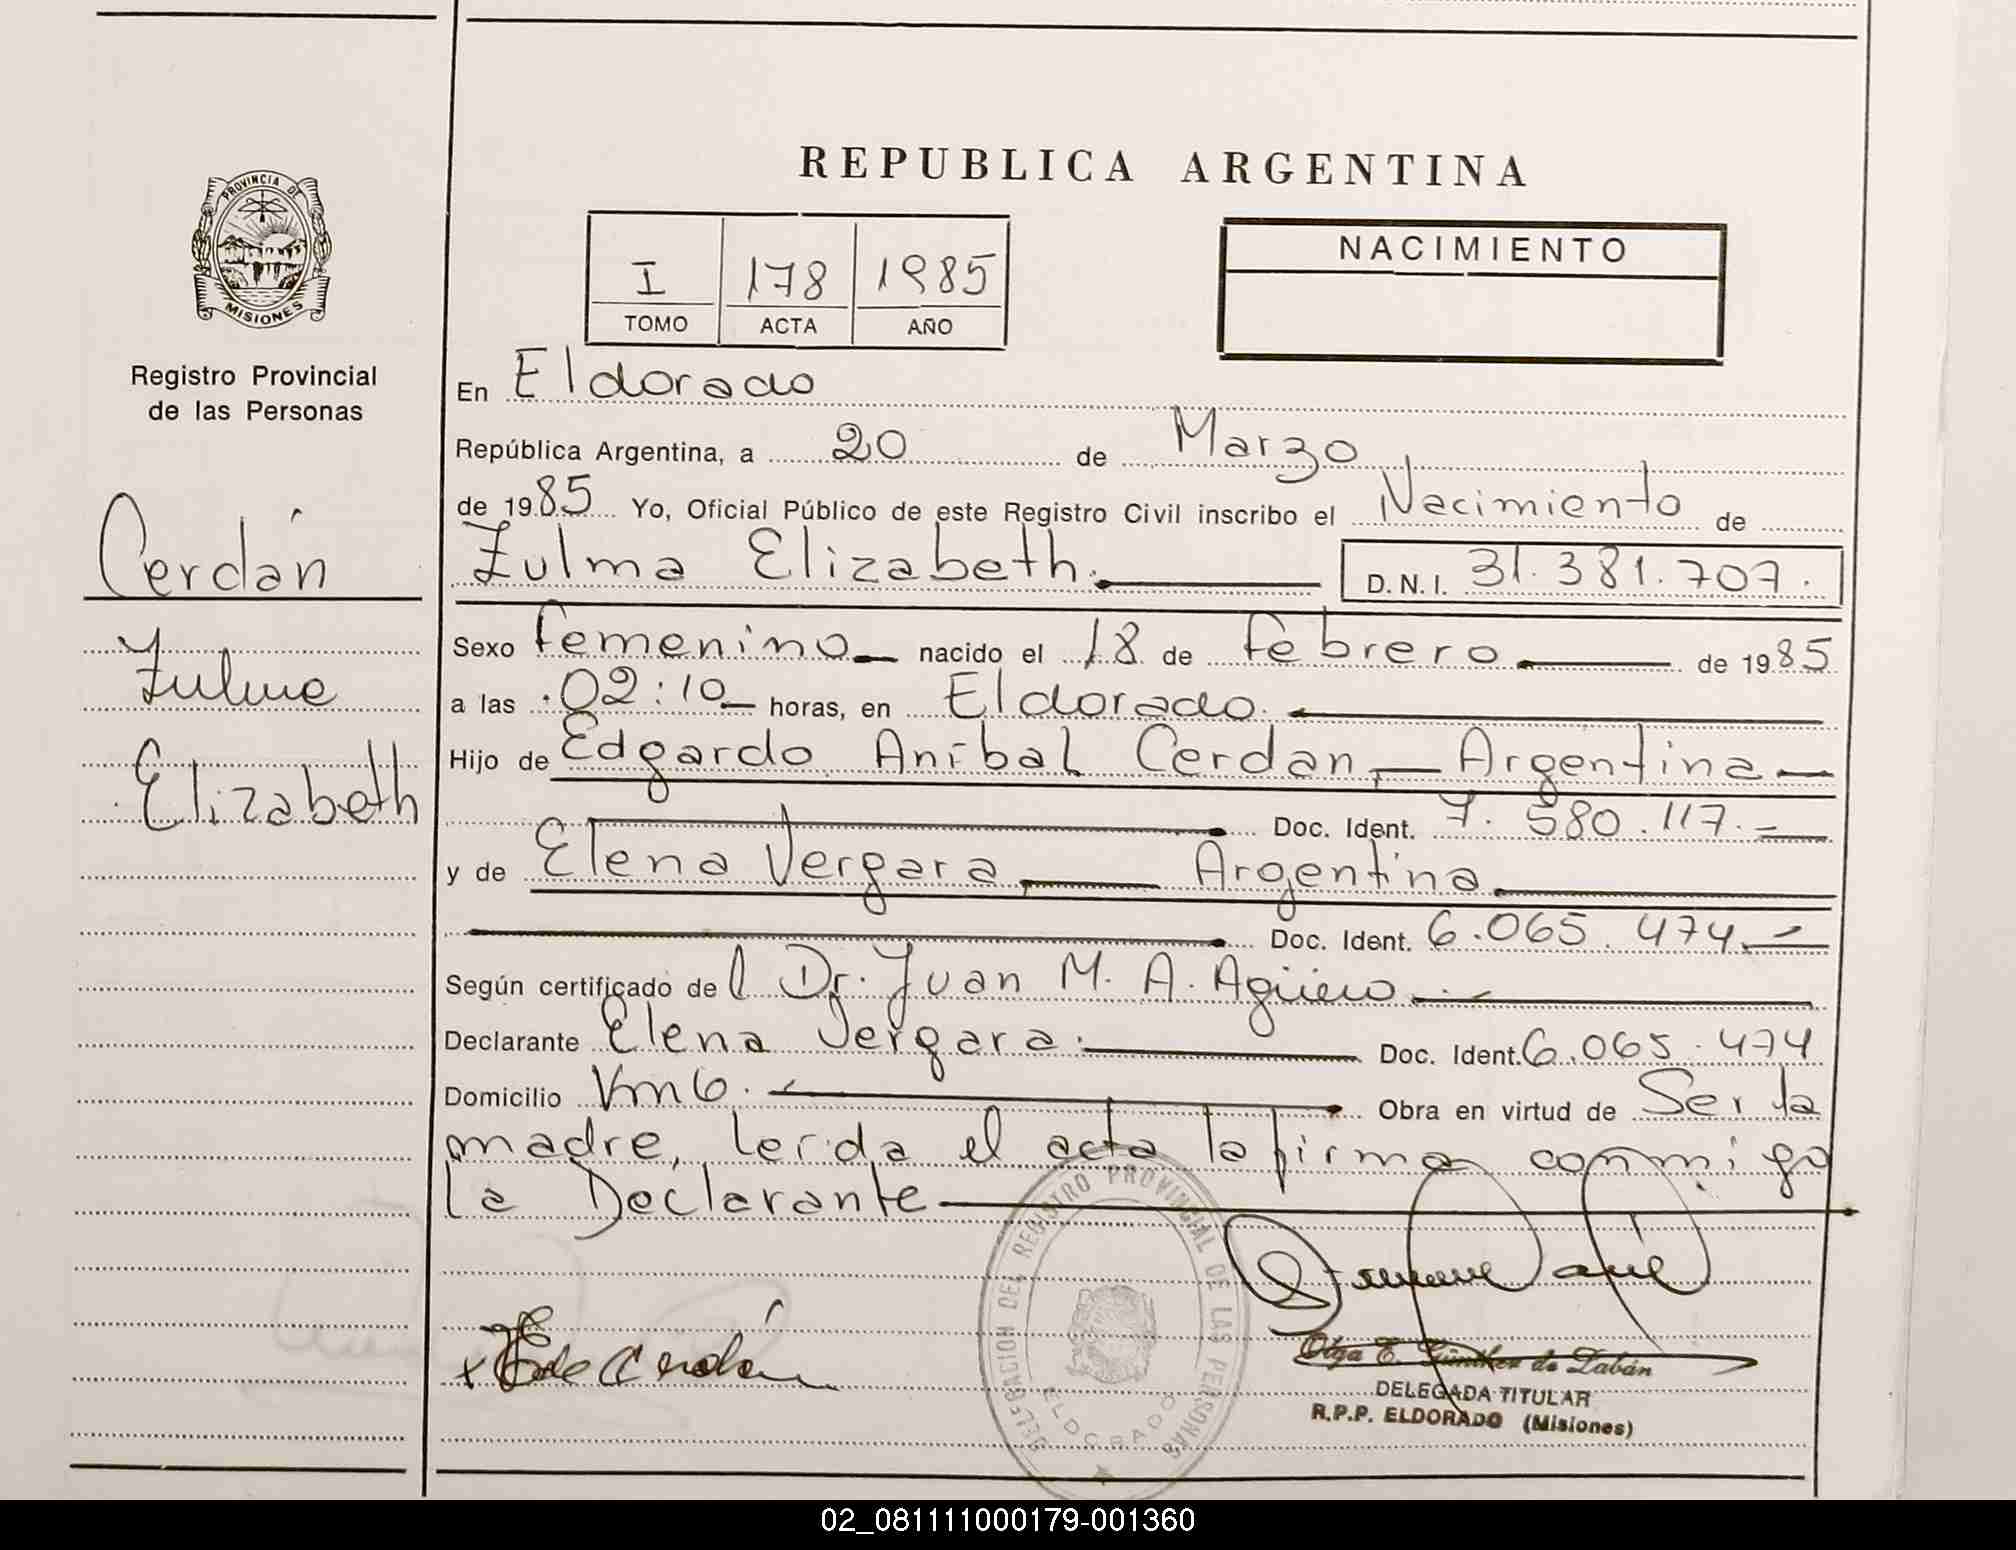 REPUBLICA ARGENTINA
PROVINCIA DE
MISIONES
Registro Provincial
de las Personas
I 178 1985
TOMO ACTA AÑO
NACIMIENTO
Cerdán
Zulma
Elizabeth
En Eldorado
República Argentina, a 20 de Marzo
de 1985 Yo, Oficial Público de este Registro Civil inscribo el Nacimiento de
Zulma Elizabeth. D.N.I. 31.381.707.
Sexo femenino nacido el 18 de febrero de 1985
a las 02:10 horas, en Eldorado.
Hijo de Edgardo Aníbal Cerdan, Argentina
Doc. Ident. 7.580.117.
y de Elena Vergara, Argentina
Doc. Ident. 6.065.474
Según certificado del Dr. Juan M. A. Agüero
Declarante Elena Vergara. Doc. Ident. 6.065.474
Domicilio Km 6. Obra en virtud de Ser la
madre, leída el acta la firma conmigo
la Declarante
DELEGACION DEL REGISTRO PROVINCIAL DE LAS PERSONAS
ELDORADO
x E de Cerdán
Olga E. Günther de Labán
DELEGADA TITULAR
R.P.P. ELDORADO (Misiones)
02_081111000179-001360